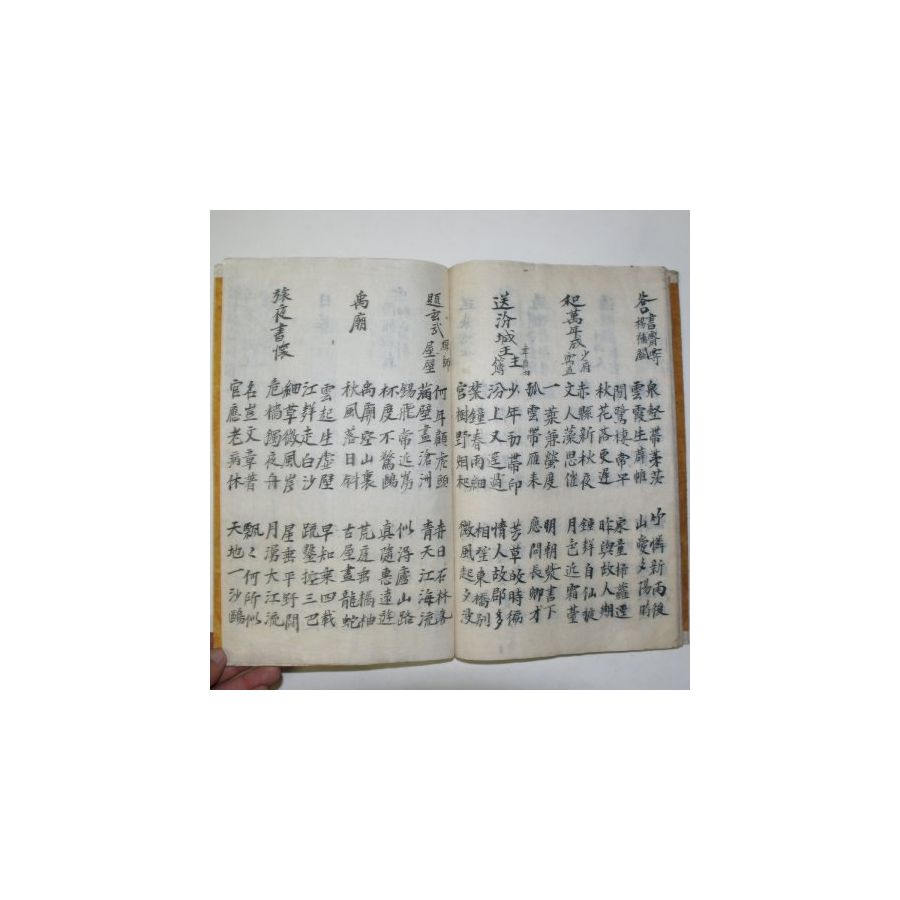 谷口書齋寄楊補闕
泉壑帶茅茨 竹憐新雨後
雲霞生薜帷 山愛夕陽時
閒鷺棲常早 家童掃蘿逕
秋花落更遲 昨與故人期
和萬年成少府寓直
赤縣新秋夜 鍾鮮自仙掖
文人藻思催 月色近霜臺
一葉兼螢度 明朝紫書下
孤雲帶雁來 應問長卿才
送汾城王主簿
少年初帶印 芳草時徧
汾上又過 情人故郡多
禁鐘春雨細 相望東橋別
宮樹野烟和 微風起夕没
題玄武禪師屋壁
何年顧虎頭 赤日石林氣
滿壁畫滄洲 青天江海流
錫飛常近鶴 似得廬山路
杯度不驚鷗 真隨惠遠遊
禹廟
禹廟空山裏 荒庭垂橘柚
秋風落日斜 古屋畫龍蛇
雲起生虛壁 早知乘四載
江聲走白沙 疏鑿控三巴
旅夜書懷
細草微風岸 星垂平野闊
危檣獨夜舟 月湧大江流
名豈文章著 飄々何所似
官應老病休 天地一沙鷗